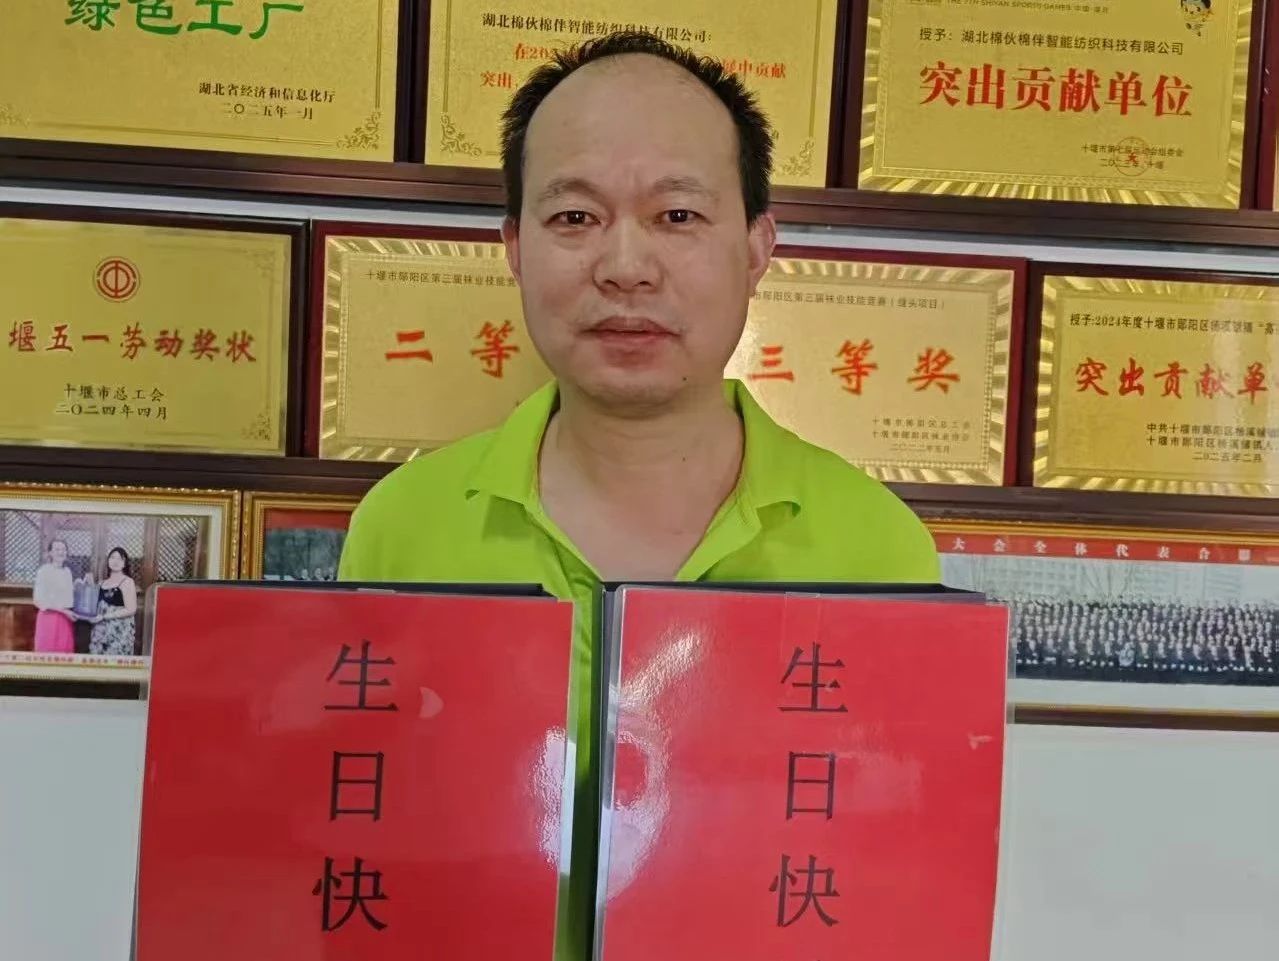 绿色工厂
湖北省经济和信息化厅
二〇二五年一月
湖北棉伙棉伴智能纺织科技有限公司:
在202
展中贡献
突出
授予:湖北棉伙棉伴智能纺织科技有限公司
突出贡献单位
十堰市第七届运动会组委会
堰五一劳动奖状
十堰市总工会
二〇二四年四月
十堰市郧阳区第三届袜业技能竞
二等
市郧阳区第三届袜业技能竞赛(缝头项目)
三等奖
十堰市郧阳区总工会
十堰市郧阳区袜业协会
授予:2024年度十堰市郧阳区杨溪铺镇"高
突出贡献单
中共十堰市郧阳区杨溪铺镇
十堰市郧阳区杨溪铺镇人
二〇二五年二月
大会全体代表合影
生日快
生日快